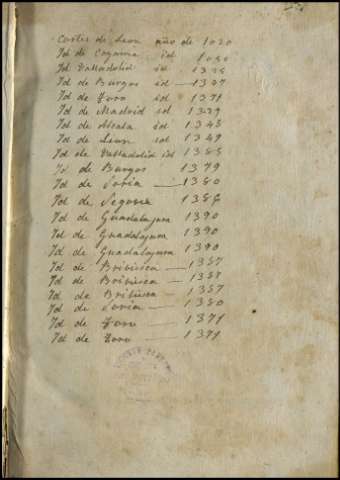 Cortes de Leon año de 1020
Id de Coyanca id 1050
Id Valladolid id
Id de Burgos id — 1367
Id de Toro id 1371
Id de Madrid id 1329
Id de Alcala id 1348
Id de Leon id 1349
Id de Valladolid id 1385
Id de Burgos 1379
Id de Soria — 1380
Id de Segovia 1386
Id de Guadalajara 1390
Id de Guadalajara 1390
Id de Guadalajara 1390
Id de Bribiesca — 1387
Id de Bribiesca — 1387
Id de Bribiesca — 1387
Id de Soria — 1380
Id de Toro — 1371
Id de Toro — 1371